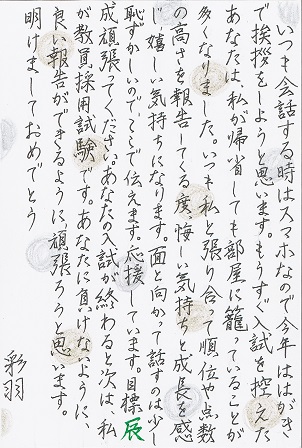 いつも会話する時はスマホなので今年ははがき
で挨拶をしようと思います。もうすぐ入試を控えた
あなたは、私が帰省しても部屋に籠っていることが
多くなりました。いつも私と張り合って順位や点数
の高さを報告してくる度、悔しい気持ちと成長を感
じ嬉しい気持ちになります。面と向かって話すのは少し
恥ずかしいのでここで伝えます。応援しています。目標辰
成頑張てください。あなたの入試が終わると次は、私
が教員採用試験です。あなたに負けないように、
良い報告ができるように頑張ろうと思います。
明けましておめでとう
彩羽